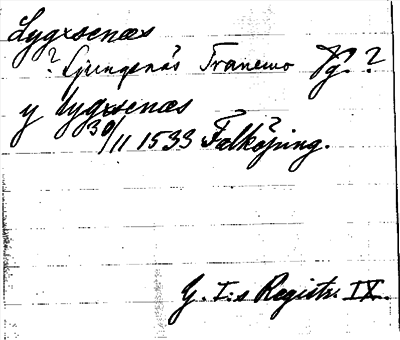 Lygxsenæs
? Ljungenäs Tranemo Vg. ?
y lygxsenæs
30/11 1533 Falköping.
G. I:s Registr. IX.